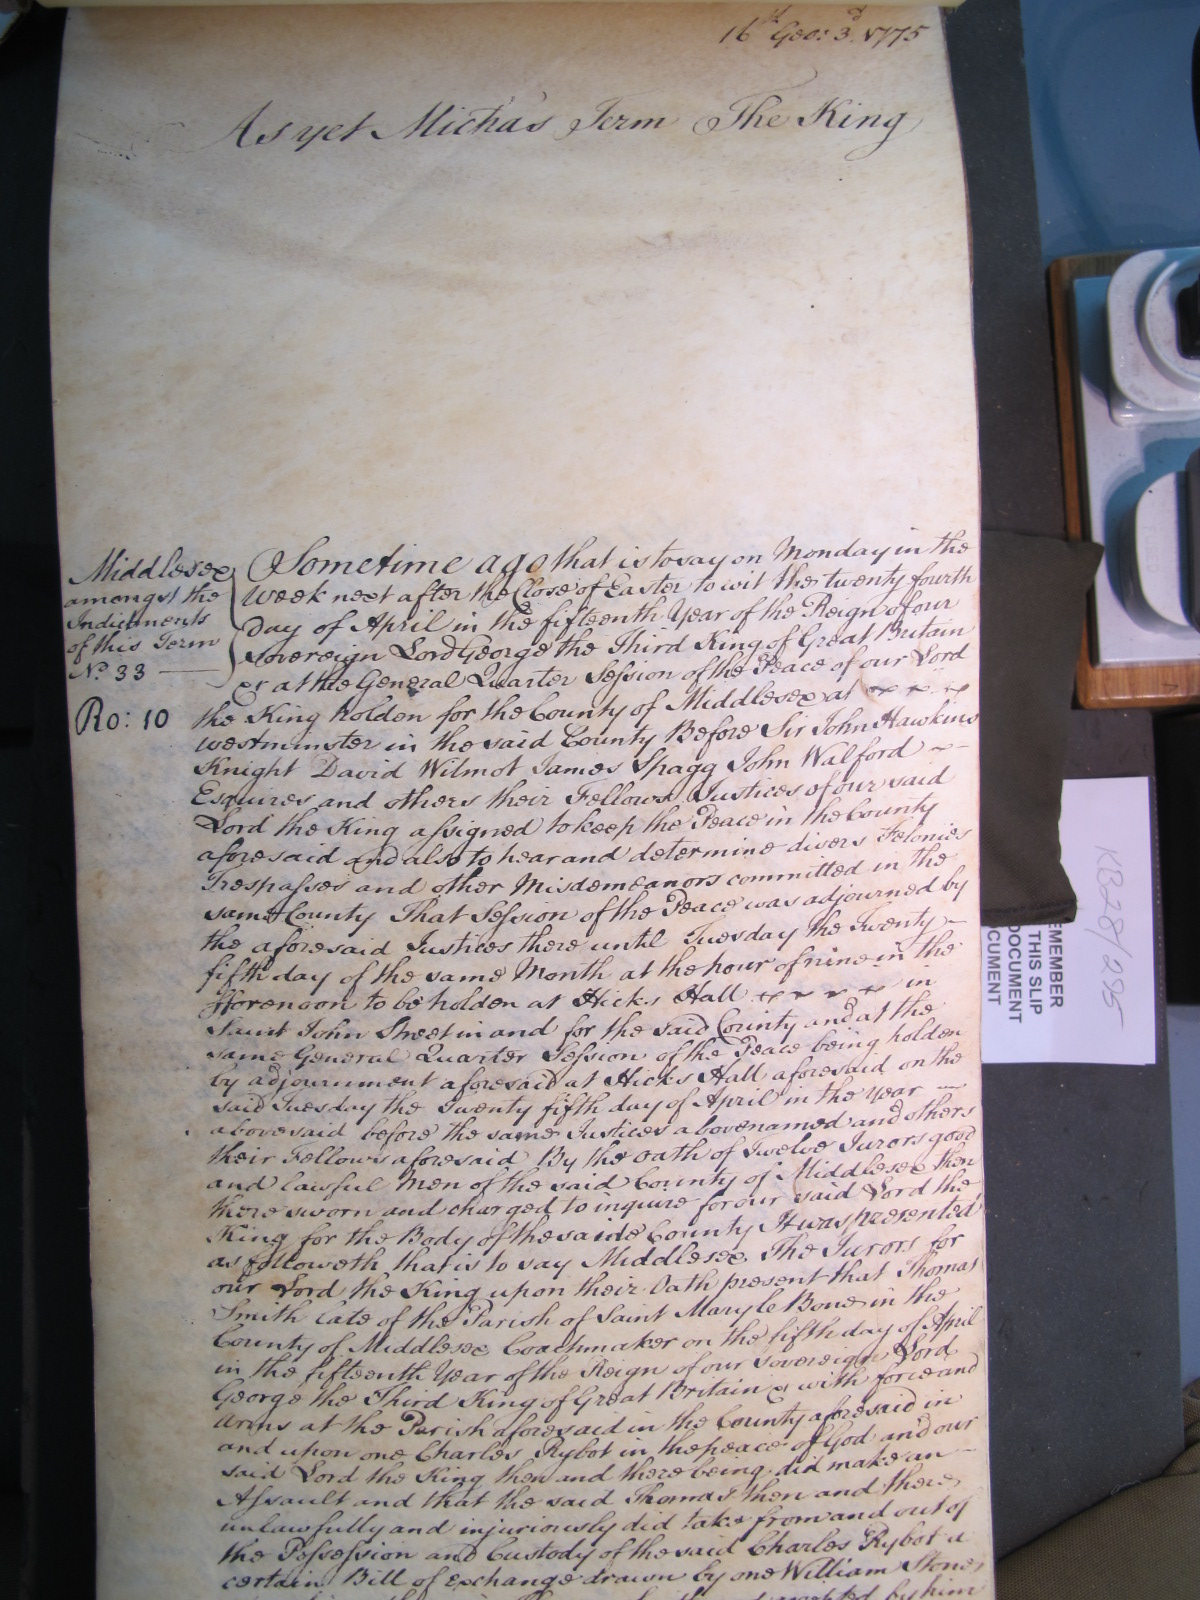 16th Geo: 3d 1775
As yet Michas Term The King
Middlesex
amongst the
Indictments
of this Term
No. 33
Ro: 10
Sometime ago that is to say on Monday in the
week next after the Close of Easter to wit the twenty fourth
Day of April in the fifteenth Year of the Reign of our
Sovereign Lord George the Third King of Great Britain
&c at the General Quarter Session of the Peace of our Lord
the King holden for the County of Middlesex at
Westminster in the said County Before Sir John Hawkins
Knight David Wilmot James Spagg John Walford
Esquires and others their Fellows Justices of our said
Lord the King assigned to keep the Peace in the County
aforesaid and also to hear and determine divers Felonies
Trespasses and other Misdemeanors committed in the
same County That Session of the Peace was adjourned by
the aforesaid Justices there until Tuesday the Twenty
fifth day of the same Month at the hour of nine in the
fforenoon to be holden at Hicks Hall in
Saint John Street in and for the said County and at the
same General Quarter Session of the Peace being holden
by adjournment aforesaid at Hicks Hall aforesaid on the
said Tuesday the twenty fifth day of April in the Year
abovesaid before the same Justices abovenamed and others
their Fellows aforesaid By the Oath of Twelve Jurors good
and lawful Men of the said County of Middlesex then
there sworn and charged to inquire for our said Lord the
King for the Body of the saide County It was presented
as followeth that is to say Middlesex The Jurors for
our Lord the King upon their Oath present that Thomas
Smith late of the Parish of Saint Mary le Bone in the
County of Middlesex Coachmaker on the fifth day of April
in the fifteenth Year of the Reign of our Sovereign Lord
George the Third King of Great Britain &c with force and
arms at the Parish aforesaid in the County aforesaid in
and upon one Charles Rybot in the peace of God and our
said Lord the King then and there being did make an
Assault and that the said Thomas then and there
unlawfully and injuriously did take from and out of
the Possession and Custody of the said Charles Rybot a
certain Bill of Exchange drawn by one William Stone
accepted by him
KB28/295
EMEMBER
THIS SLIP
DOCUMENT
CUMENT